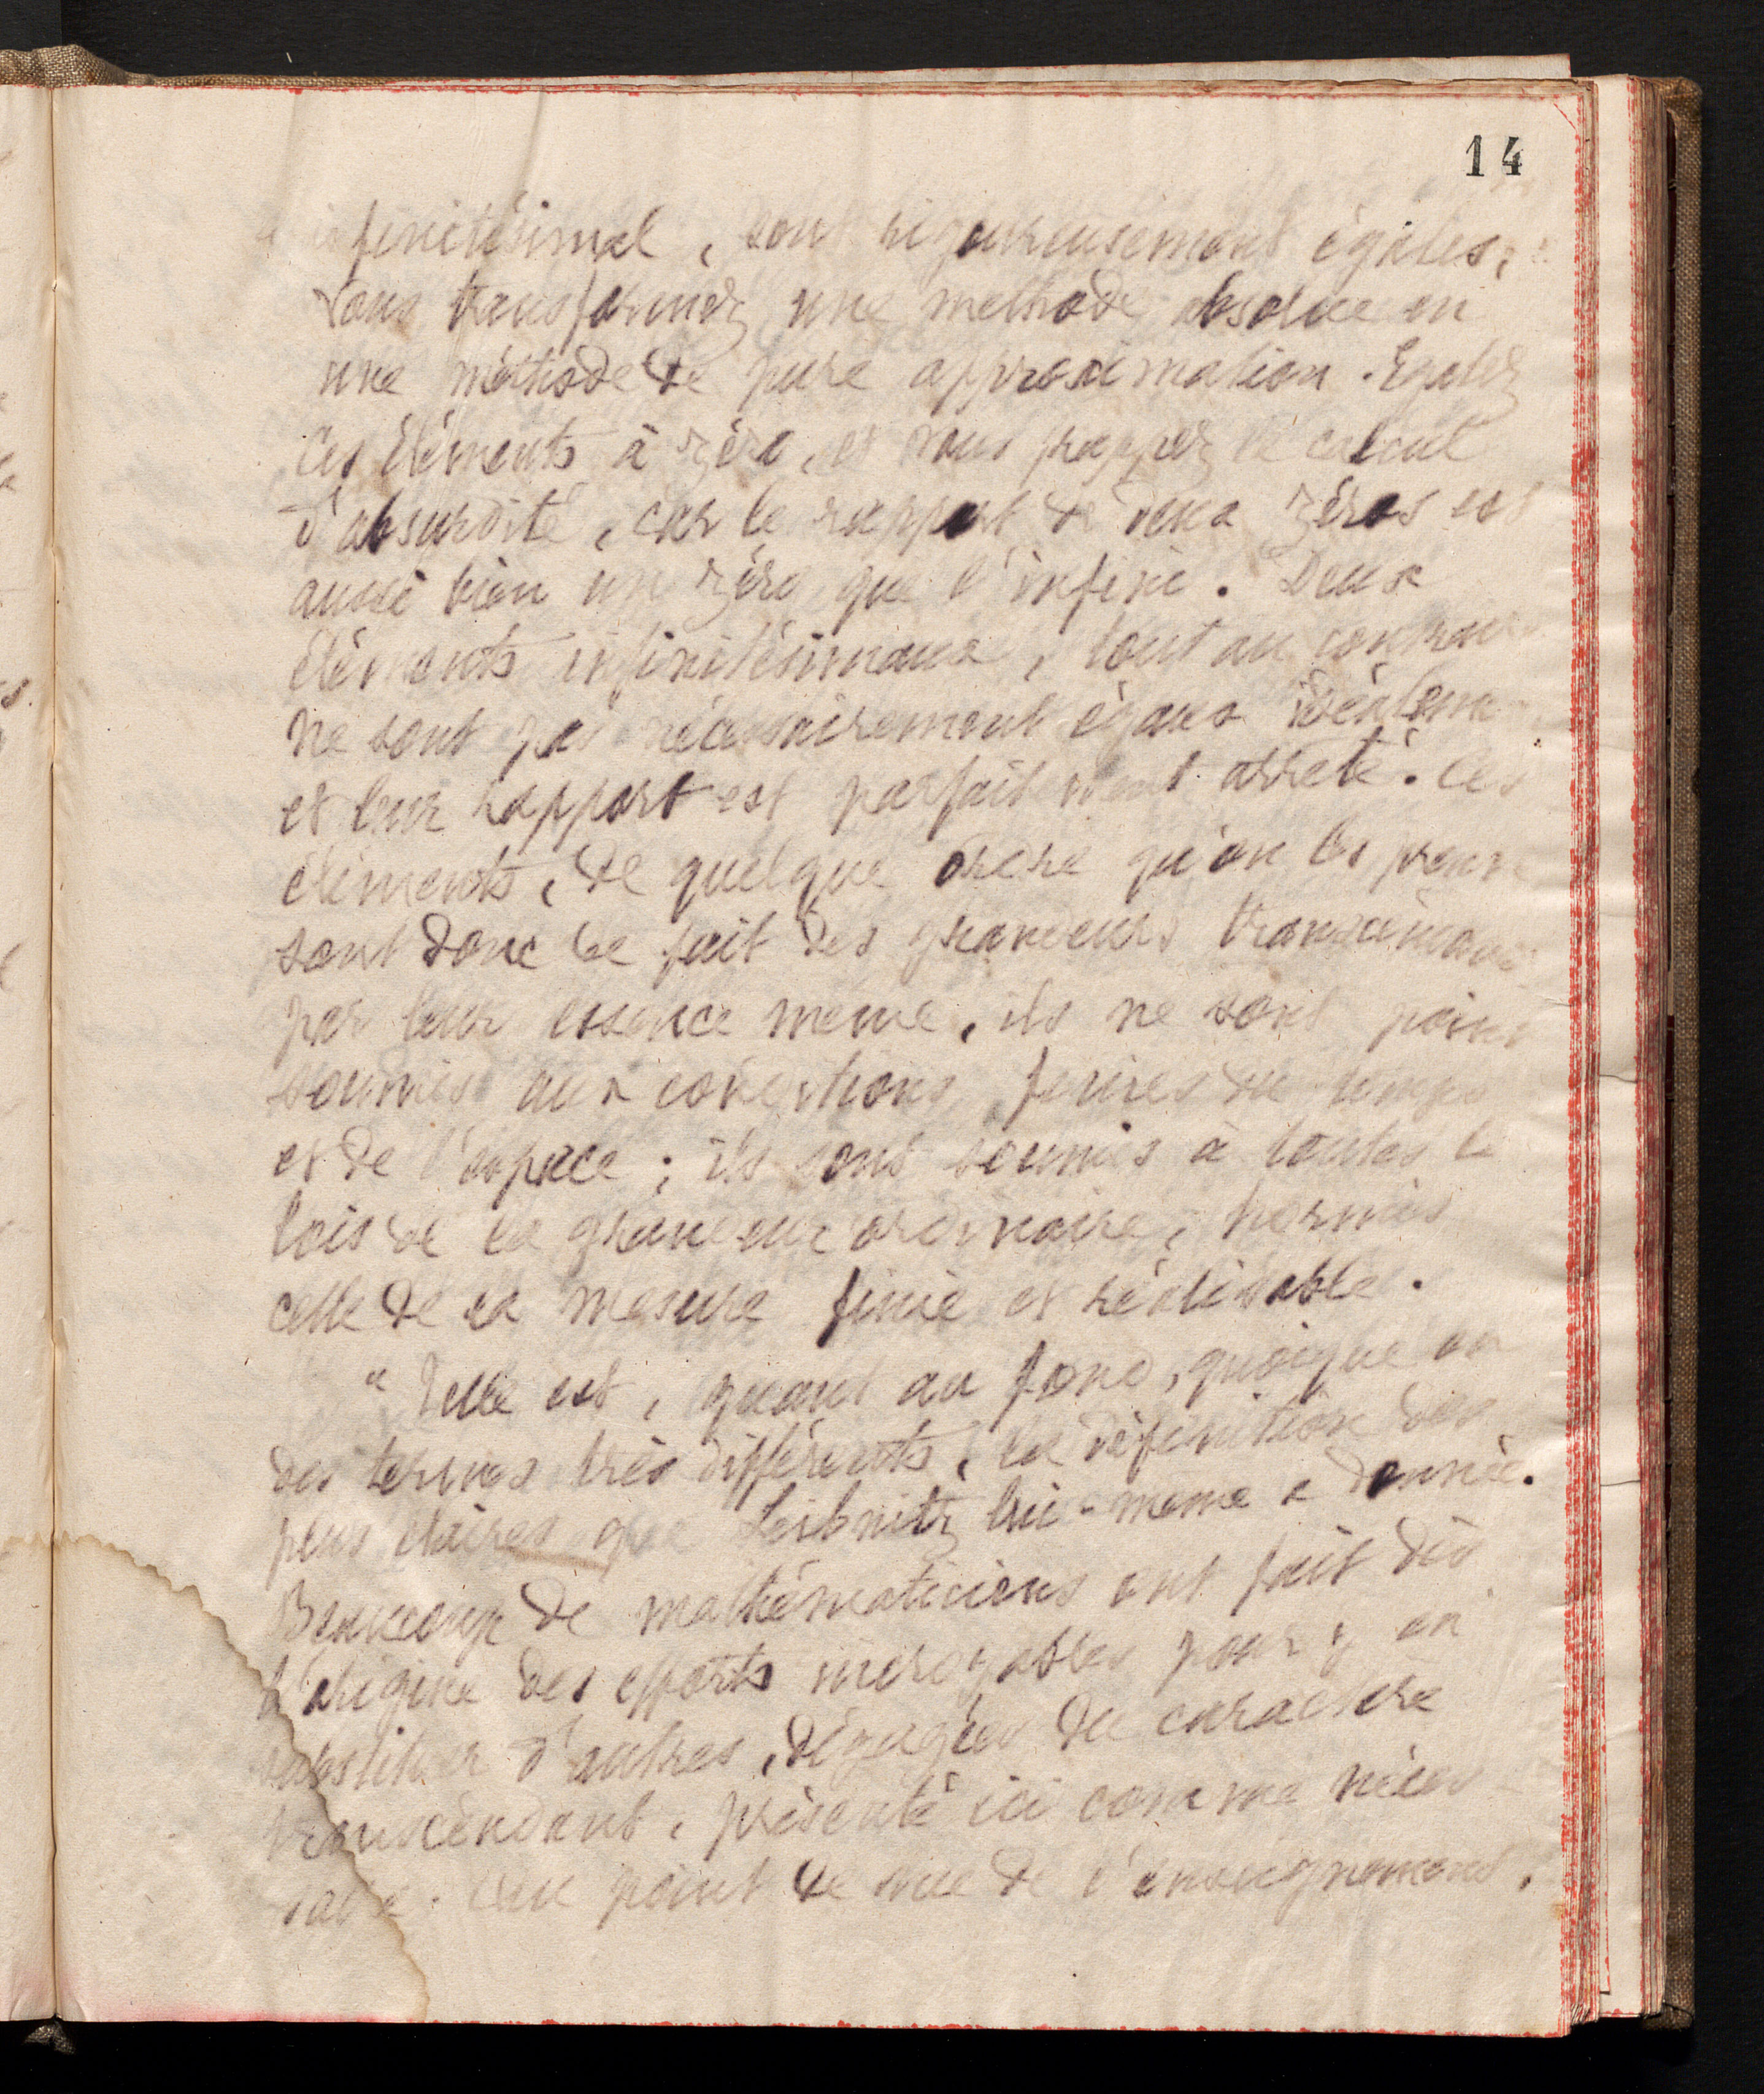 14
infinitésimal, sont rigoureusement égales,
vous transformez une méthode absolue en
une méthode de pure approximation. Egalez
ces éléments à zéro, et vous frappez le calcul
d'absurdité, car le rapport de deux zéros est
aussi bien un zéro que l'infini. Deux
éléments infinitésimaux, tout au contraire
ne sont pas nécessairement égaux idéaleme
et leur rapport est parfaitement arrêté. Ces
éléments, de quelque ordre qu'on les prenne
sont donc de fait des grandeurs
par leur essence même, ils ne sont point
soumis aux conditions finies du temps
et de l'espace ; ils sont soumis à toutes le
lois de la grandeur ordinaire, hormis
celle de la mesure finie et réalisable.
" Telle est, quant au fond, quoique en
des termes très différents, la définition des
plus claires que Leibnitz lui-même a donnée.
Beaucoup de mathématiciens ont fait dès
l'origine des efforts incroyables pour y en
substituer d'autres, dégagées du caractère
transcendant, présenté ici comme néces
saire. Au point de vue de l'enseignement,